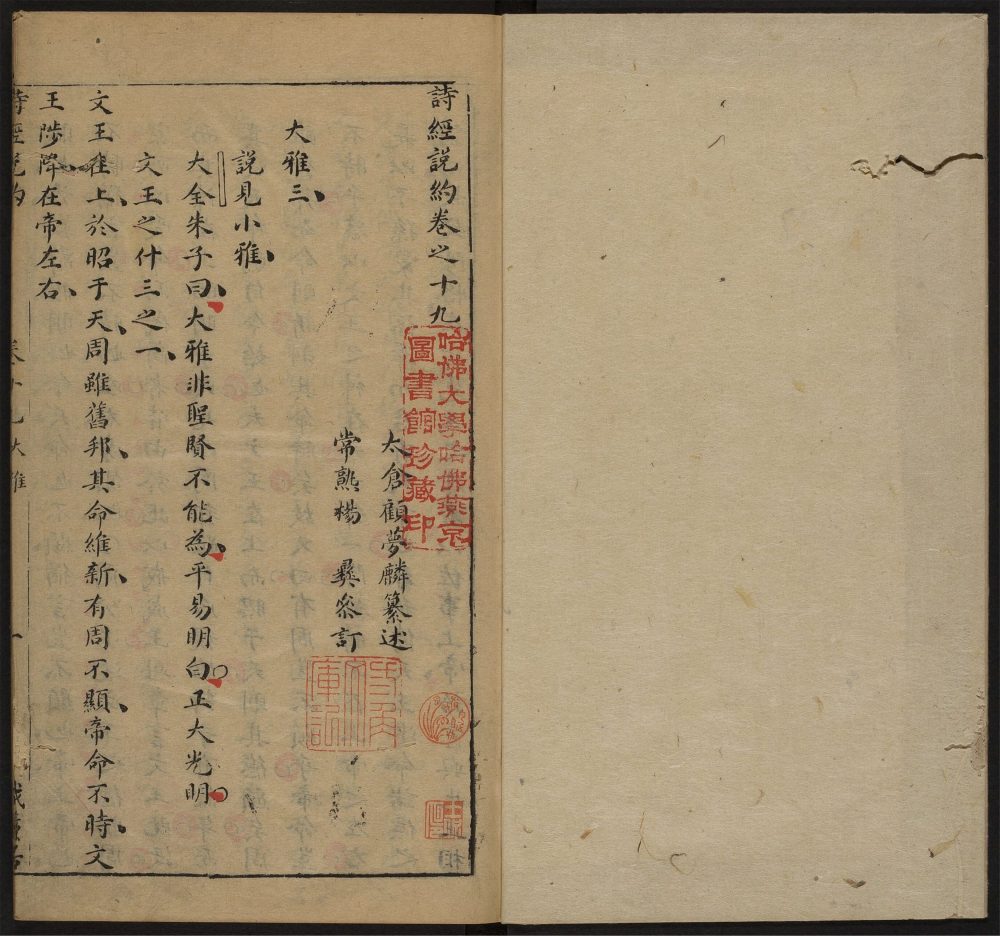 詩經說約卷之十九
太倉顧夢麟纂述
常熟楊彝叅訂
大雅三
說見小雅
大全朱子曰大雅非聖賢不能為平易明白正大光明
文王之什三之一
文王在上於昭于天周雖舊邦其命維新有周不顯帝命不時文
王陟降在帝左右
詩經說約 卷十九大雅 一
哈佛大學哈佛燕京
圖書館珍藏印